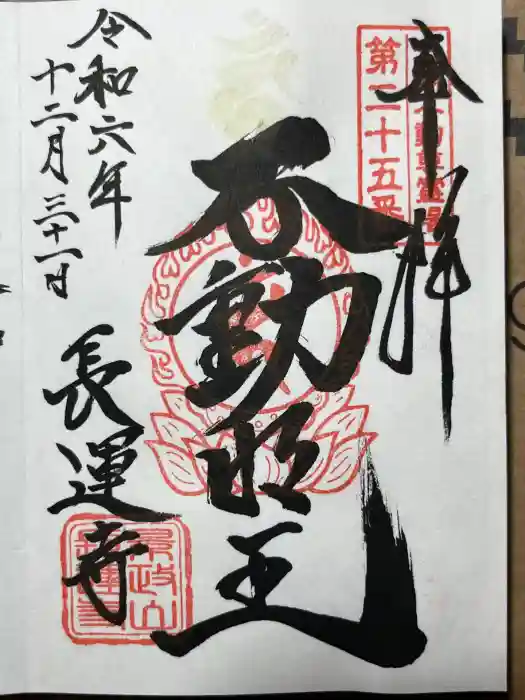 奉拝
不動尊霊場
第二十五番
不動明王
令和六年
十二月三十一日
長運寺